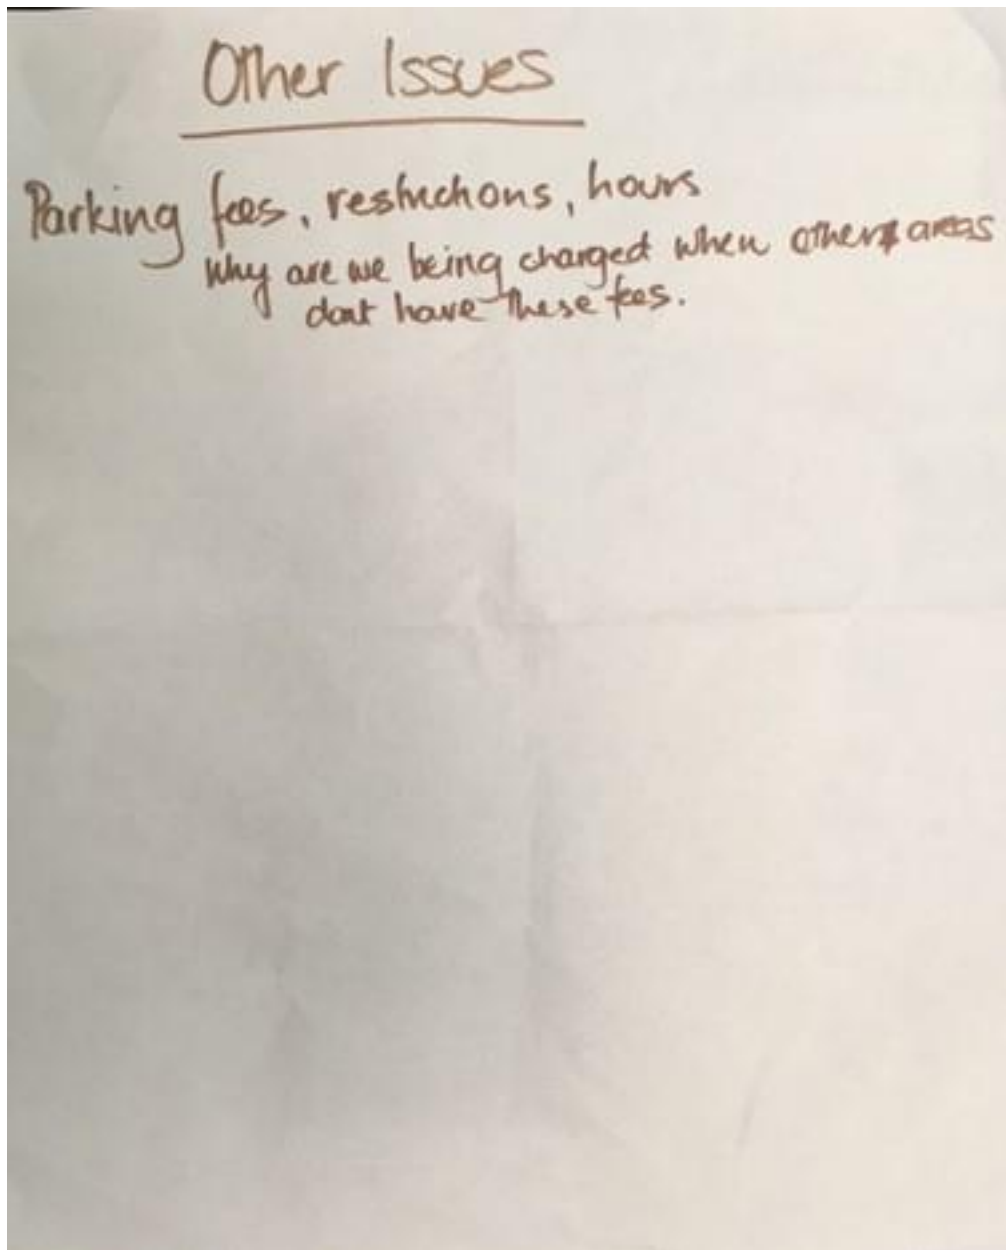 Other Issues
Parking fees, restrictions, hours
Why are we being charged when other areas
dont have these fees.